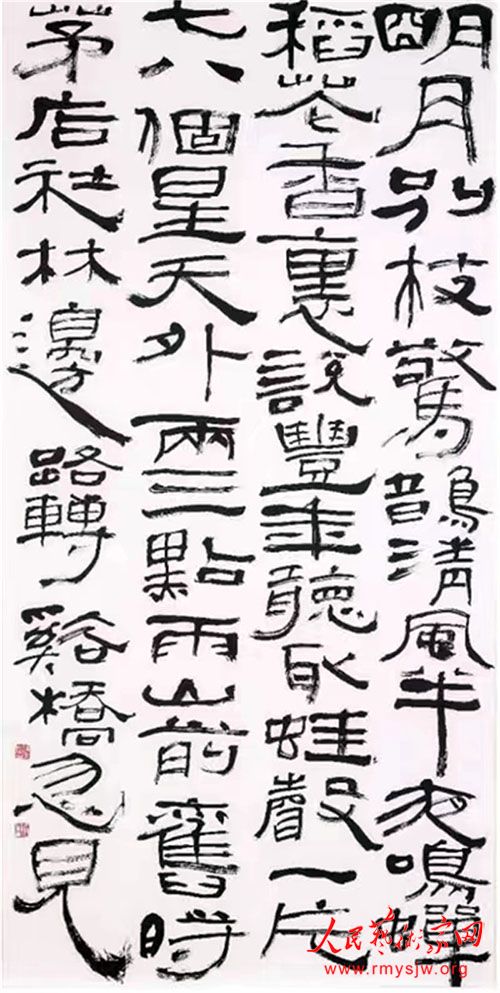 明月别枝驚鵲清風半夜鳴蟬
稻花香裏説豐年聽取蛙聲一片
七八個星天外兩三點雨山前舊時
茅店社林邊路轉谿橋忽見
人民藝術家网
www.rmysjw.org